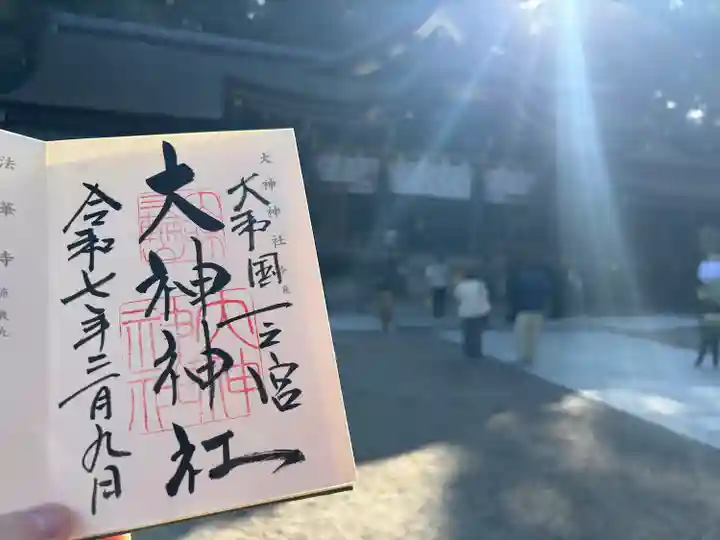 大神神社
大和国一之宮
大神神社
令和七年三月九日
法華寺